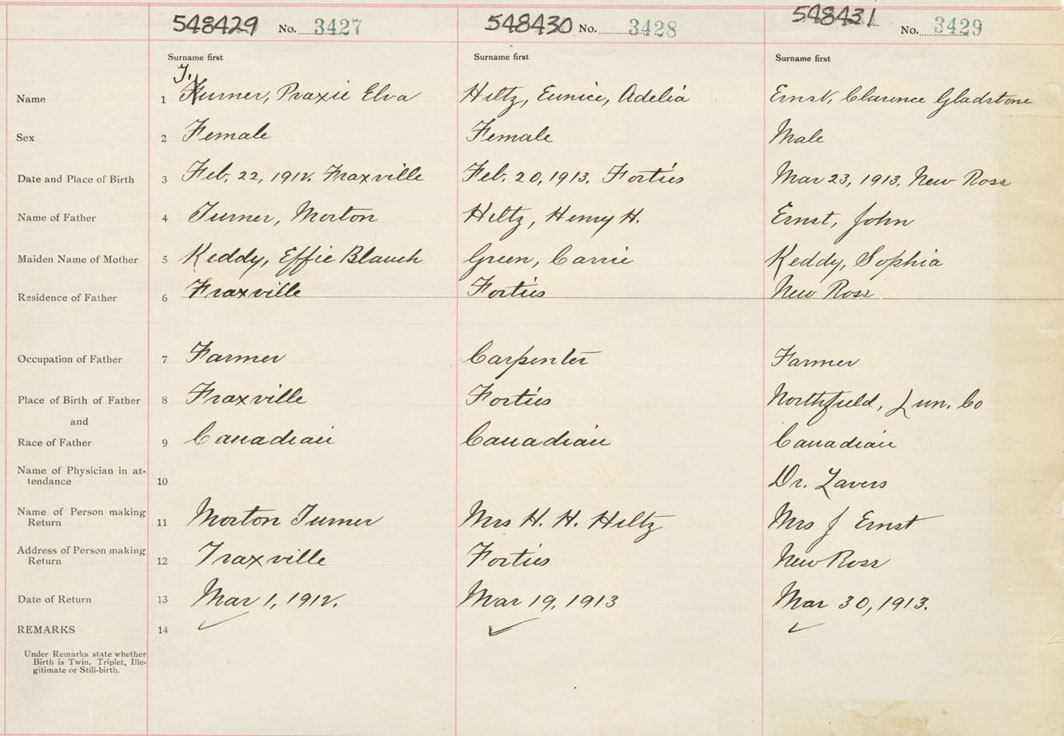 548429 No. 3427 548430 No. 3428 548431 No. 3429
Surname first Surname first Surname first
Name 1 T. Turner, Praxie Elva Hiltz, Eunice, Adelia Ernst, Clarence Gladstone
Sex 2 Female Female Male
Date and Place of Birth 3 Feb. 22, 1912. Fraxville Feb. 20, 1913. Forties Mar 23, 1913. New Ross
Name of Father 4 Turner, Morton Hiltz, Henry H. Ernst, John
Maiden Name of Mother 5 Keddy, Effie Blanch Green, Carrie Keddy, Sophia
Residence of Father 6 Fraxville Forties New Ross
Occupation of Father 7 Farmer Carpenter Farmer
Place of Birth of Father 8 Fraxville Forties Northfield, Lun. Co
and
Race of Father 9 Canadian Canadian Canadian
Name of Physician in at-
tendance 10 Dr. Lavers
Name of Person making
Return 11 Morton Turner Mrs H. H. Hiltz Mrs J Ernst
Address of Person making
Return 12 Fraxville Forties New Ross
Date of Return 13 Mar 1, 1912. Mar 19, 1913 Mar 30, 1913.
REMARKS 14
Under Remarks state whether
Birth is Twin, Triplet, Ille-
gitimate or Still-birth.